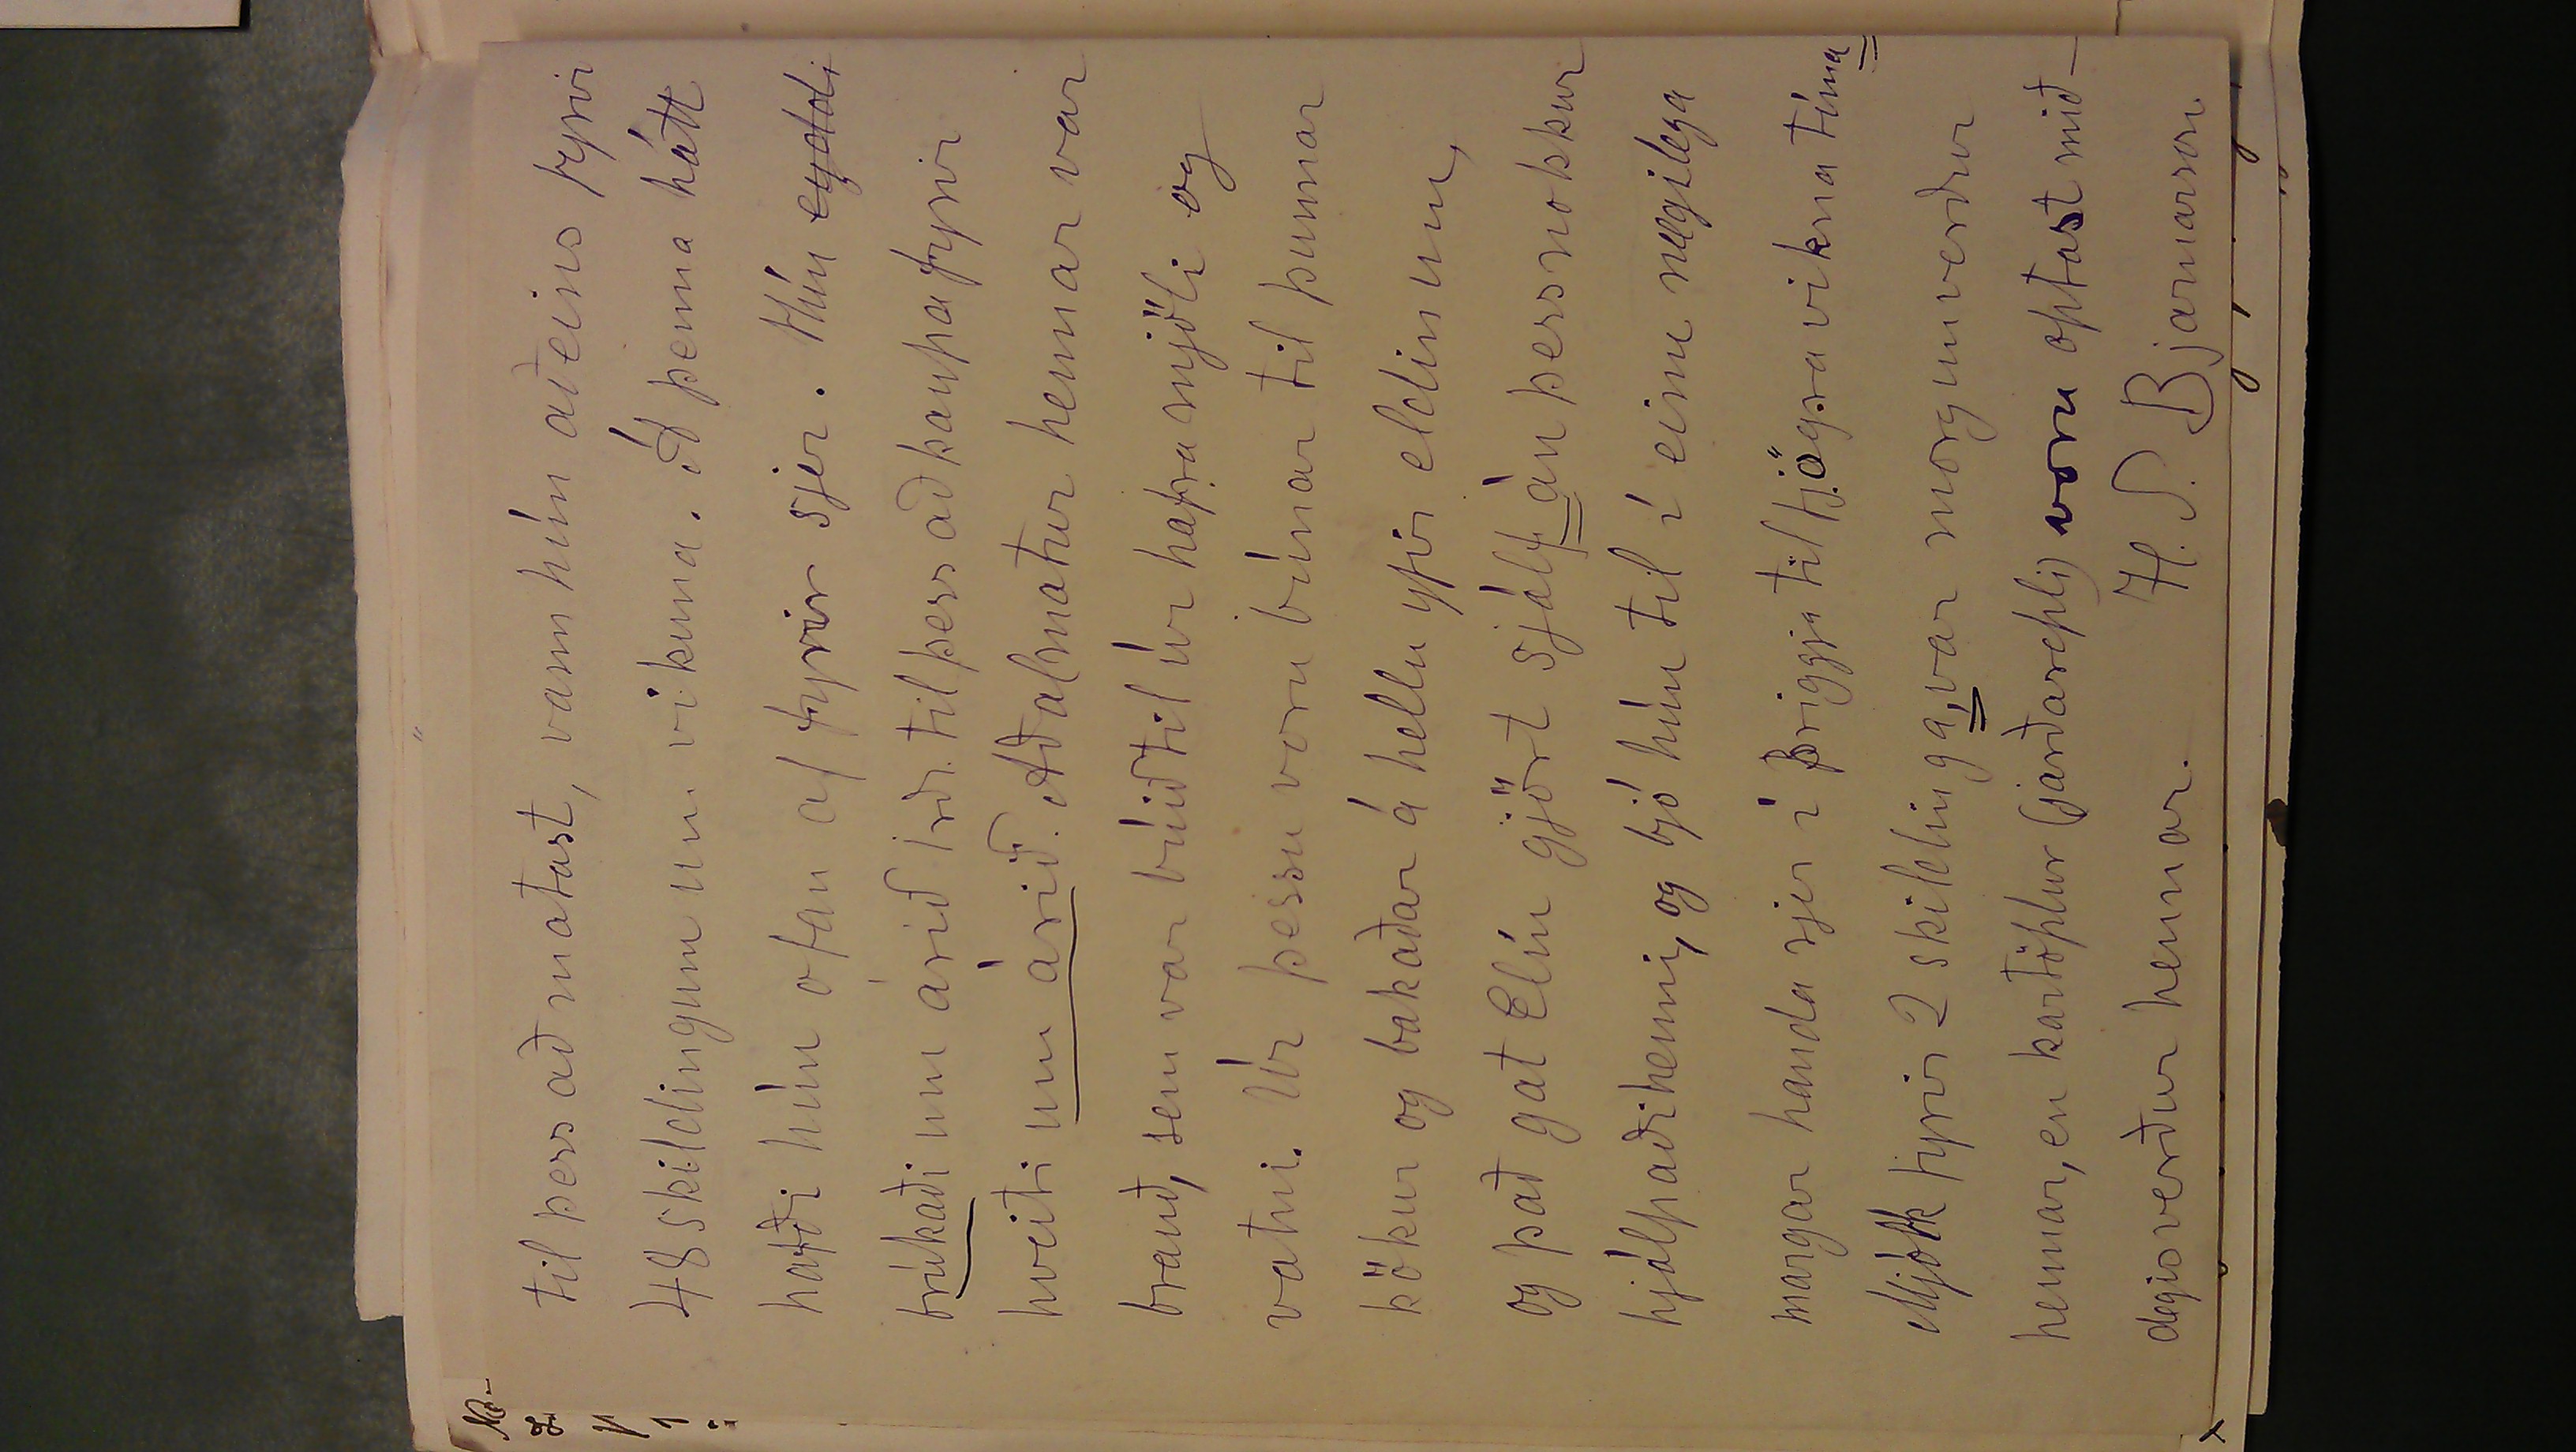 til þess að matast, vann hún aðeins fyrir
48 skildingum um vikuna. Á þenna hátt
hafði hún ofan af fyrir sjer. Hún eyddi
brúkaði um árið 1 rd. til þess að kaupa fyrir
hveiti um árið. Aðalmatur hennar var
brauð, sem var búið til úr hafra mjöli og
vatni. Úr þessu voru búnar til þunnar
kökur og bakaðar á hellu yfir eldinum,
og það gat Elín gjört sjálf, án þess nokkur
hjálpaði henni, og bjó hún til í einu nægilega
margar handa sjer í þriggja til fjögra vikna tíma
Mjólk fyrir 2 skildinga, var morgunverður
hennar, en kartöplur (jarðarepli) voru optast mið-
degisverður hennar.
H. S. Bjarnarson.